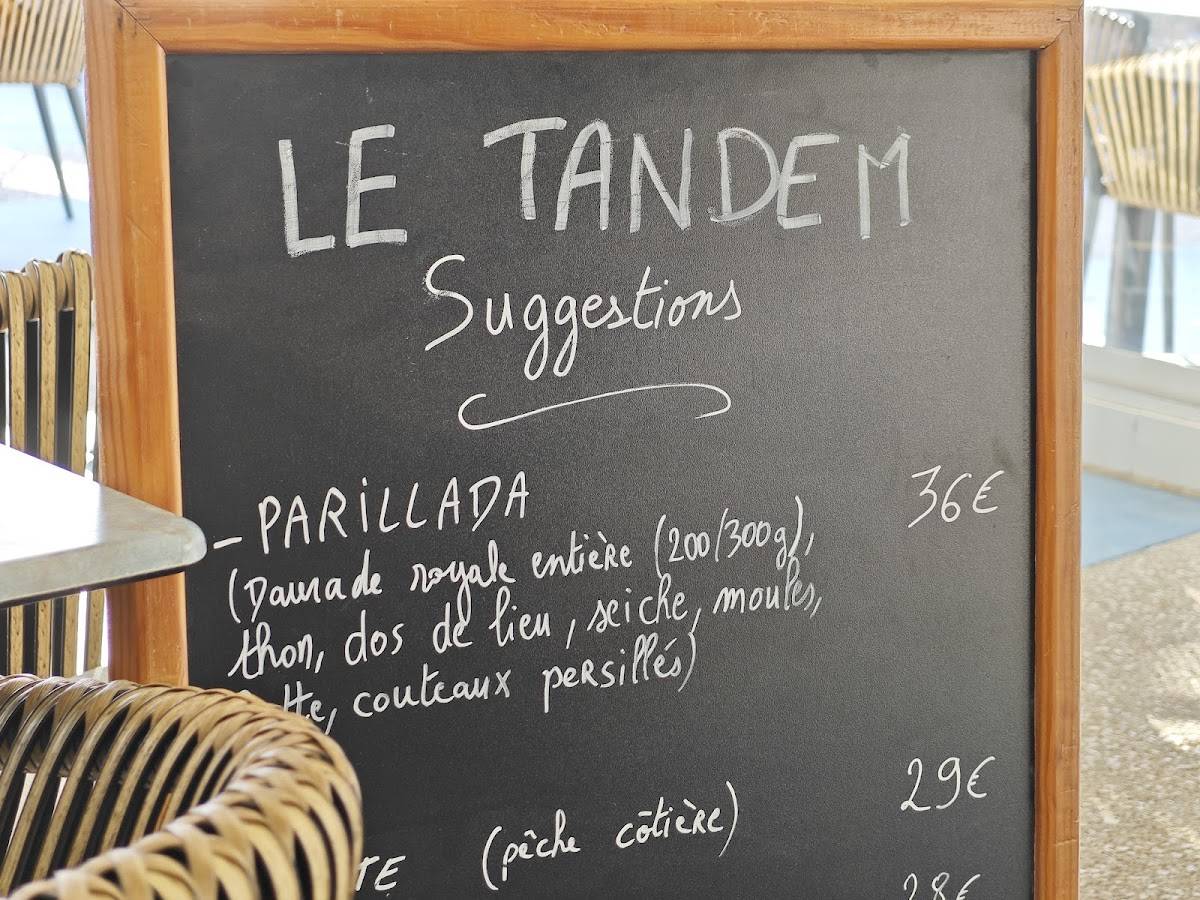 LE TANDEM
Suggestions
- PARILLADA 36€
(Daurade royale entière (200/300g),
thon, dos de lieu, seiche, moules,
couteaux persillés)
29€
(pêche côtière)
28€